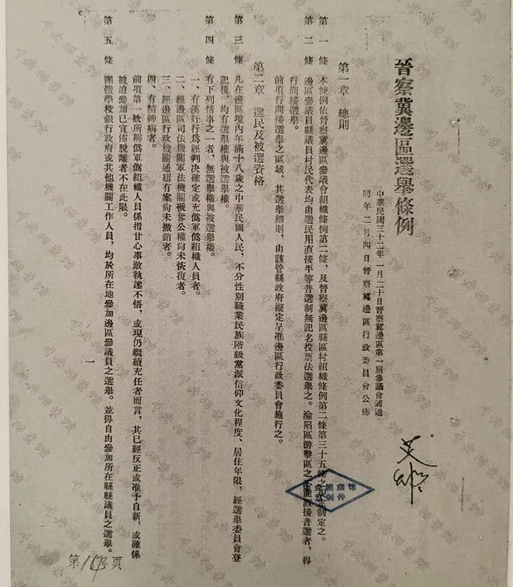 晉察冀邊區選舉條例
中華民國三十二年一月二十日晉察冀邊區第一屆參議會通過
同年二月四日晉察冀邊區行政委員會公佈
第一章 總則
第一條 本條例依晉察冀邊區參議會組織條例第二條，及晉察冀邊區縣區村組織條例第二條第三十五條之規定制定之。
第二條 邊區參議員縣議員村民代表均由選民用直接平等普選制無記名投票法選舉之。淪陷區游擊區之不能直接普選者，得
行間接選舉。
前項行間接選舉之區域，其選舉細則，由該管縣政府擬定呈准邊區行政委員會施行之。
第二章 選民及被選資格
第三條 凡在邊區境內年滿十八歲之中華民國人民，不分性別職業民族階級黨派信仰文化程度、居住年限，經選舉委員會登
記後，均有選舉權與被選舉權。
第四條 有下列情事之一者，無選舉權與被選舉權。
一、有漢奸行爲經判決確定或充僞軍僞組織人員者。
二、經邊區司法機關軍法機關褫奪公權尚未恢復者。
三、經邊區行政機關通緝有案尚未撤銷者。
四、有精神病者。
前項第一款所稱僞軍僞組織人員係指甘心事敵執迷不悟，或現仍繼續充任者而言，其已經反正或准予自新，或確係
被迫參加已宣佈脫離者不在此限。
第五條 團體學校銀行政府或其他機關工作人員，均於所在地參加邊區參議員之選舉。並得自由參加所在縣縣議員之選舉。
一
第 163 頁